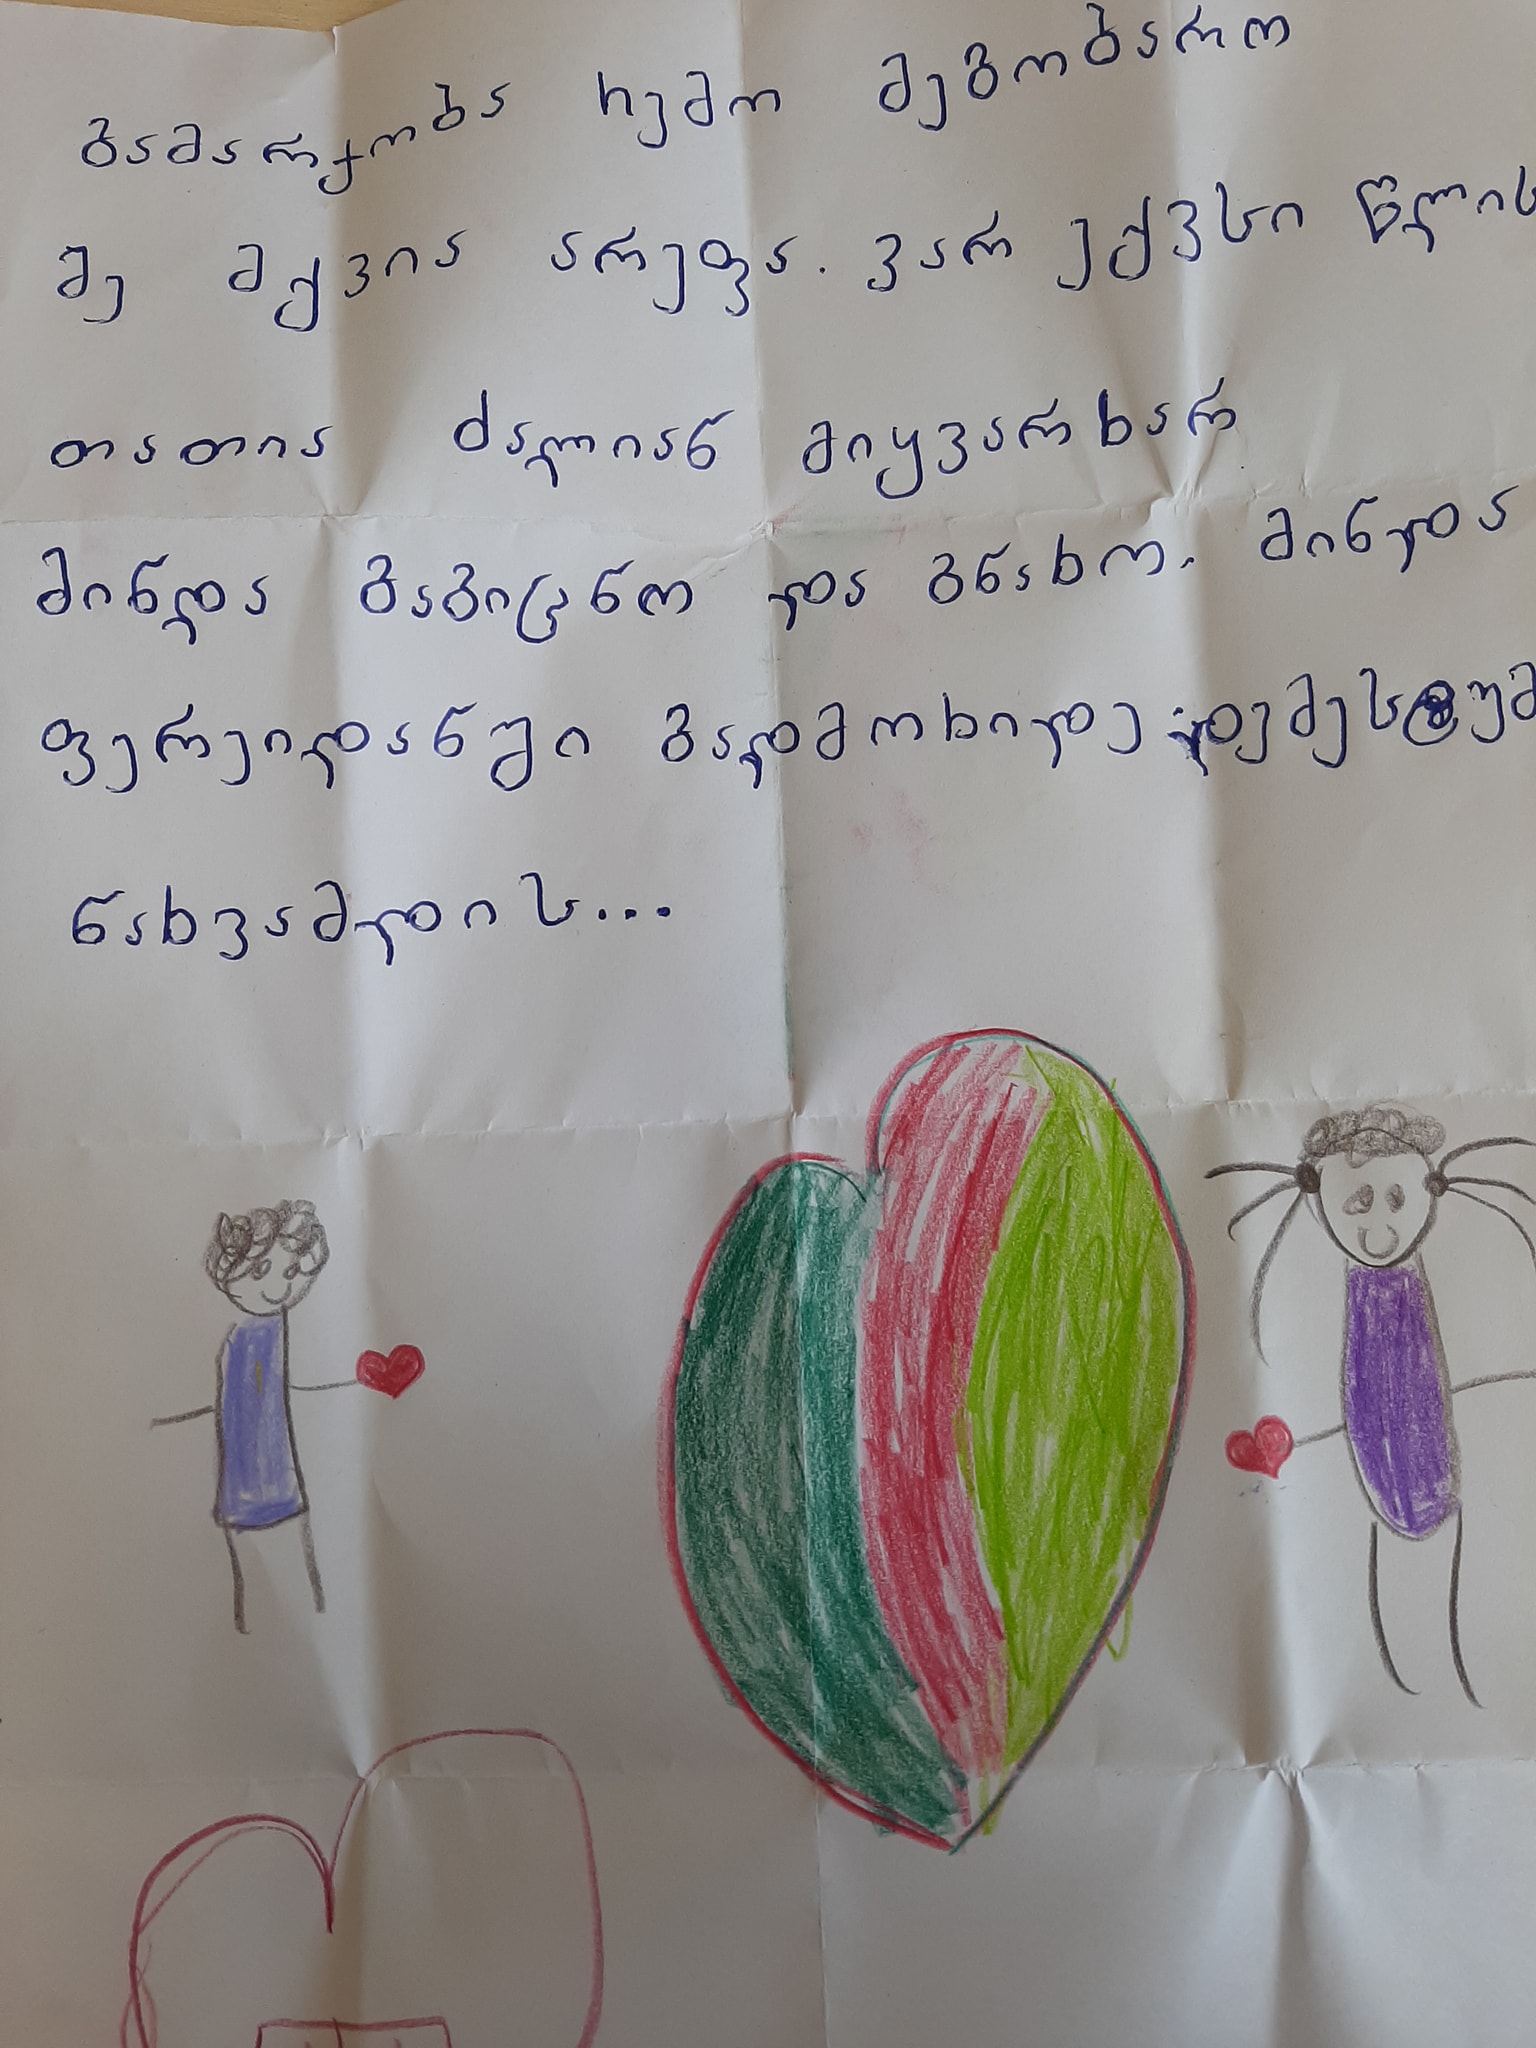 გამარჯობა ჩემო მეგობარო
მე მქვია არეფა. ვარ ექვსი წლის
თათია ძალიან მიყვარხარ
მინდა გაგიცნო და გნახო. მინდა
ფერეიდანში გადმოხიდე
ნახვამდის...